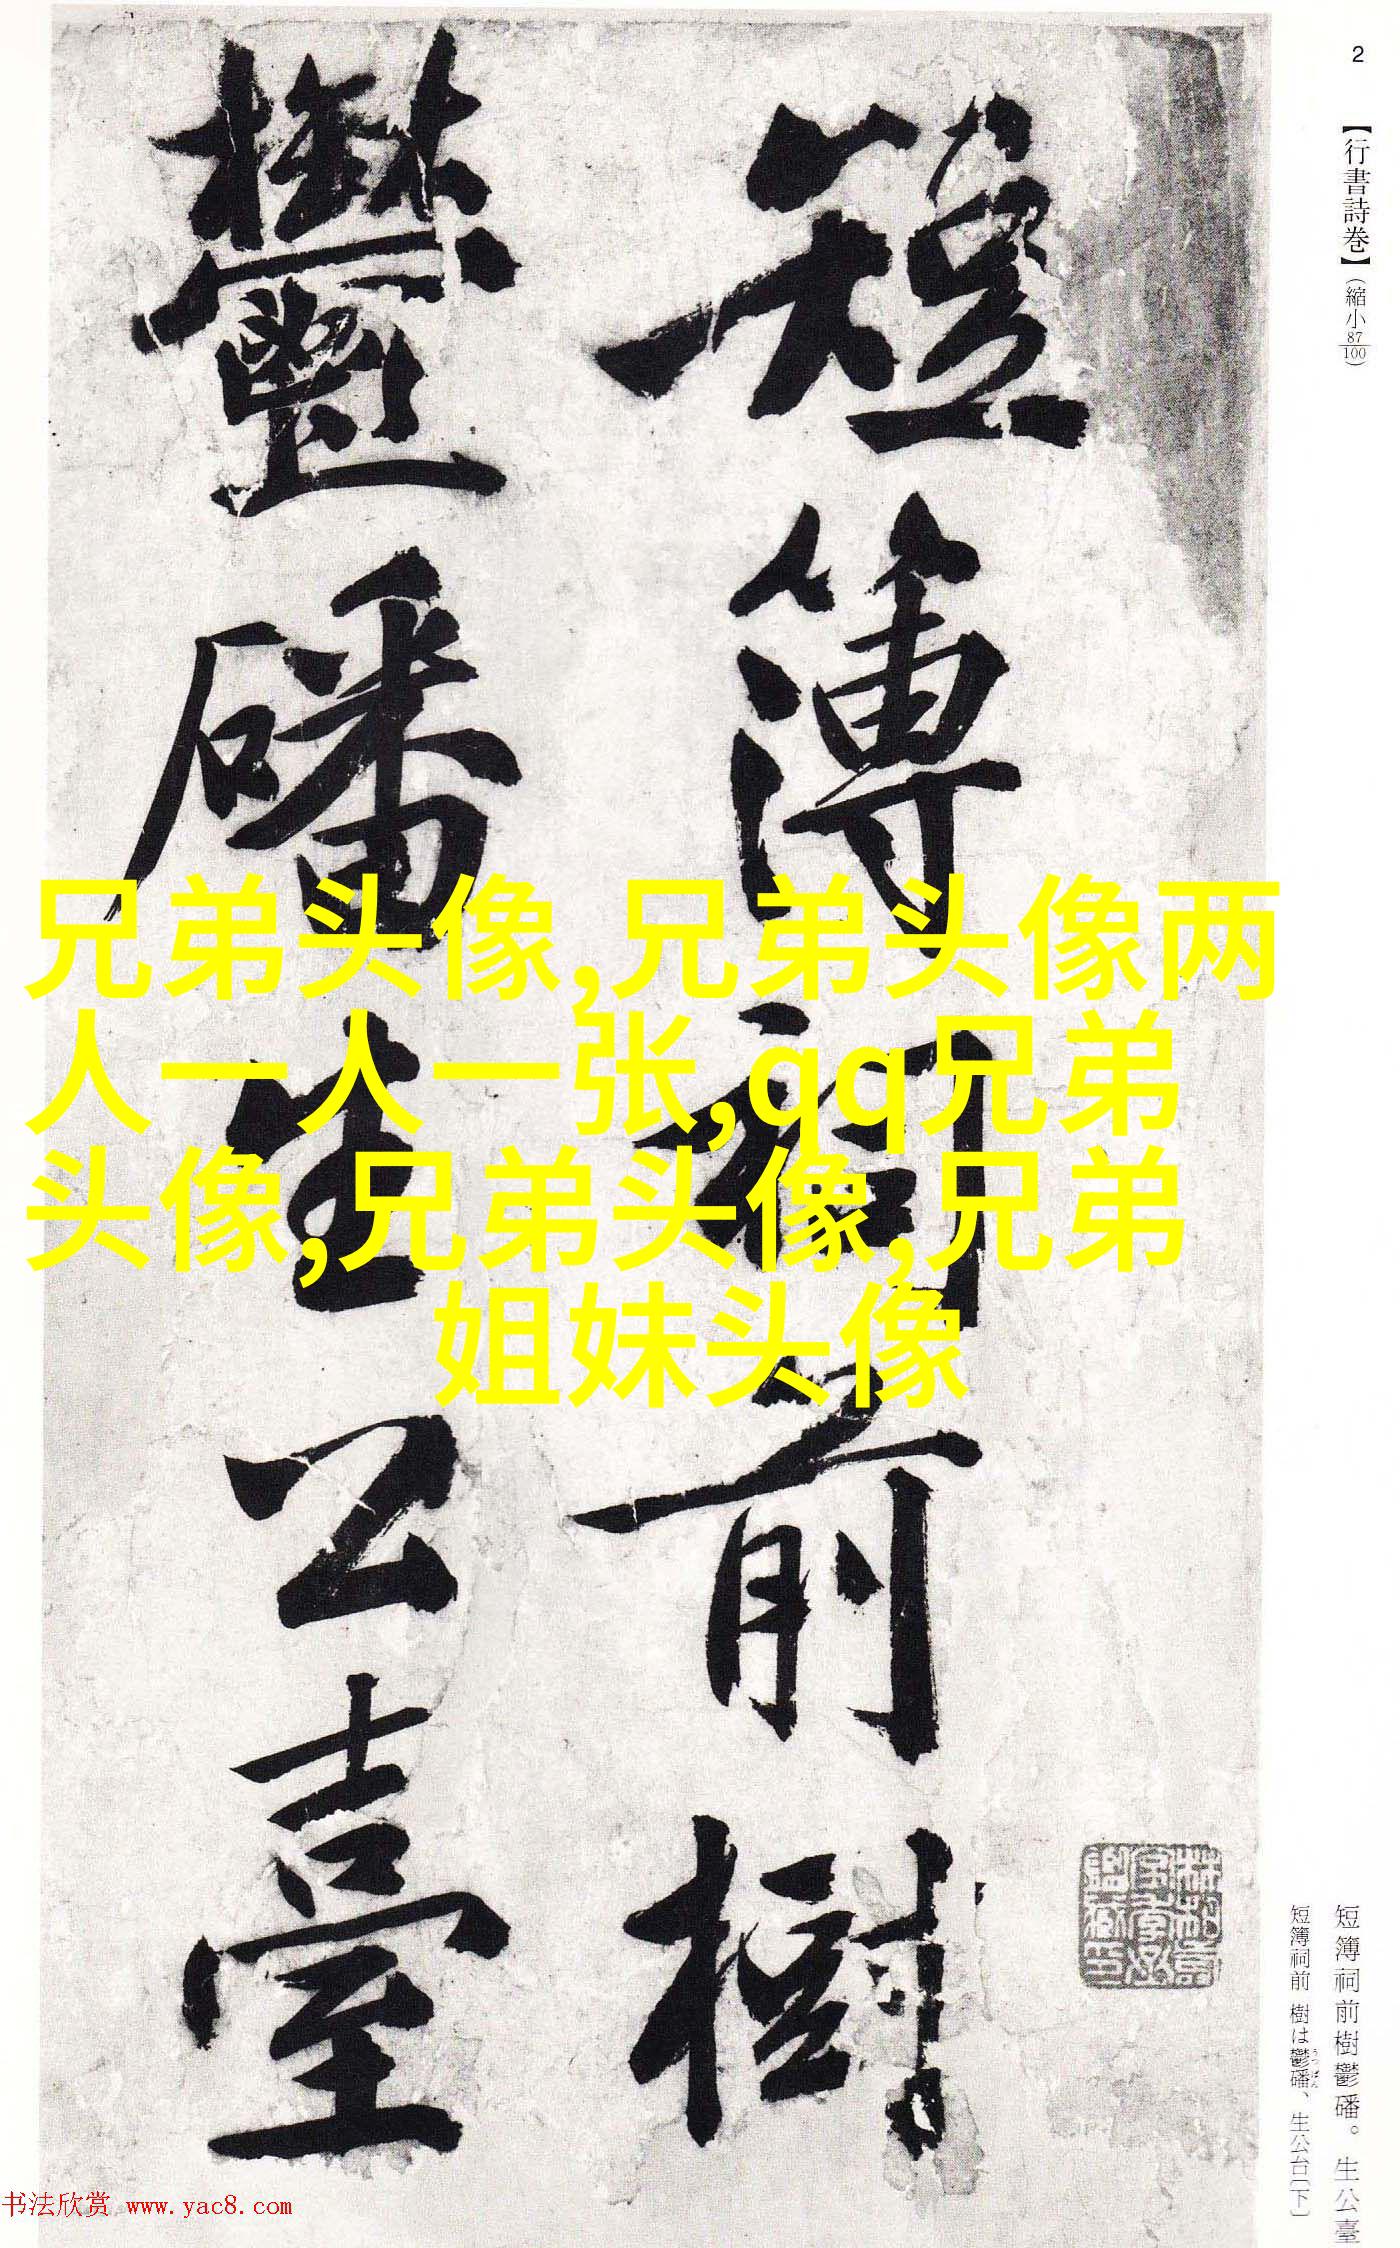 2
【行書詩巻】(縮小87/100)
短簿祠前樹
鬱磻生公臺
兄弟头像,兄弟头像两
人一人一张,qq兄弟
头像,兄弟头像,兄弟
姐妹头像
短簿祠前樹鬱磻。生公臺
短簿祠前 樹は鬱磻、生公台〔下〕
うつばん
书法欣赏 www.yac8.com